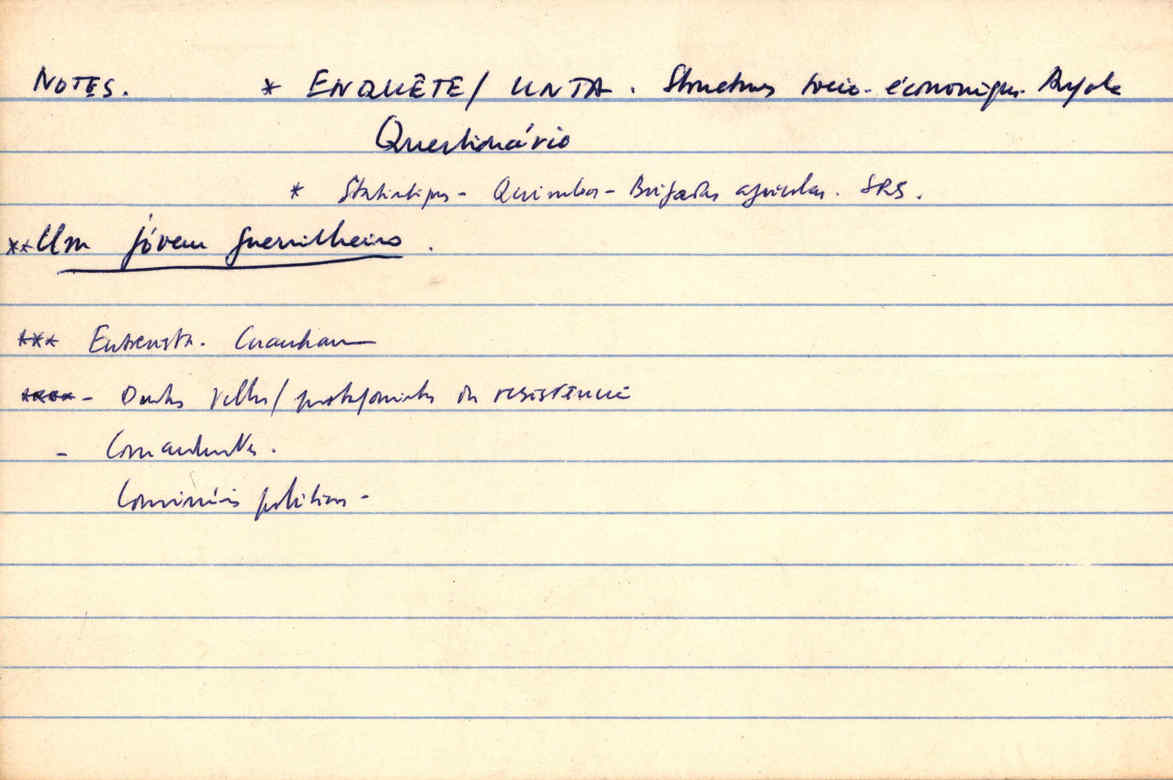 NOTES. * ENQUÊTE / UNTA. Structures socio-économiques Angola
Questionário
* Statistiques - Quimbos - Brigadas agricolas. SRS.
** Um jóvem guerrilheiro.
*** Entrevista. Cuanhama
**** - Outros Velhos / protagonistas da resistência
- Comandantes.
Comissários politicos -